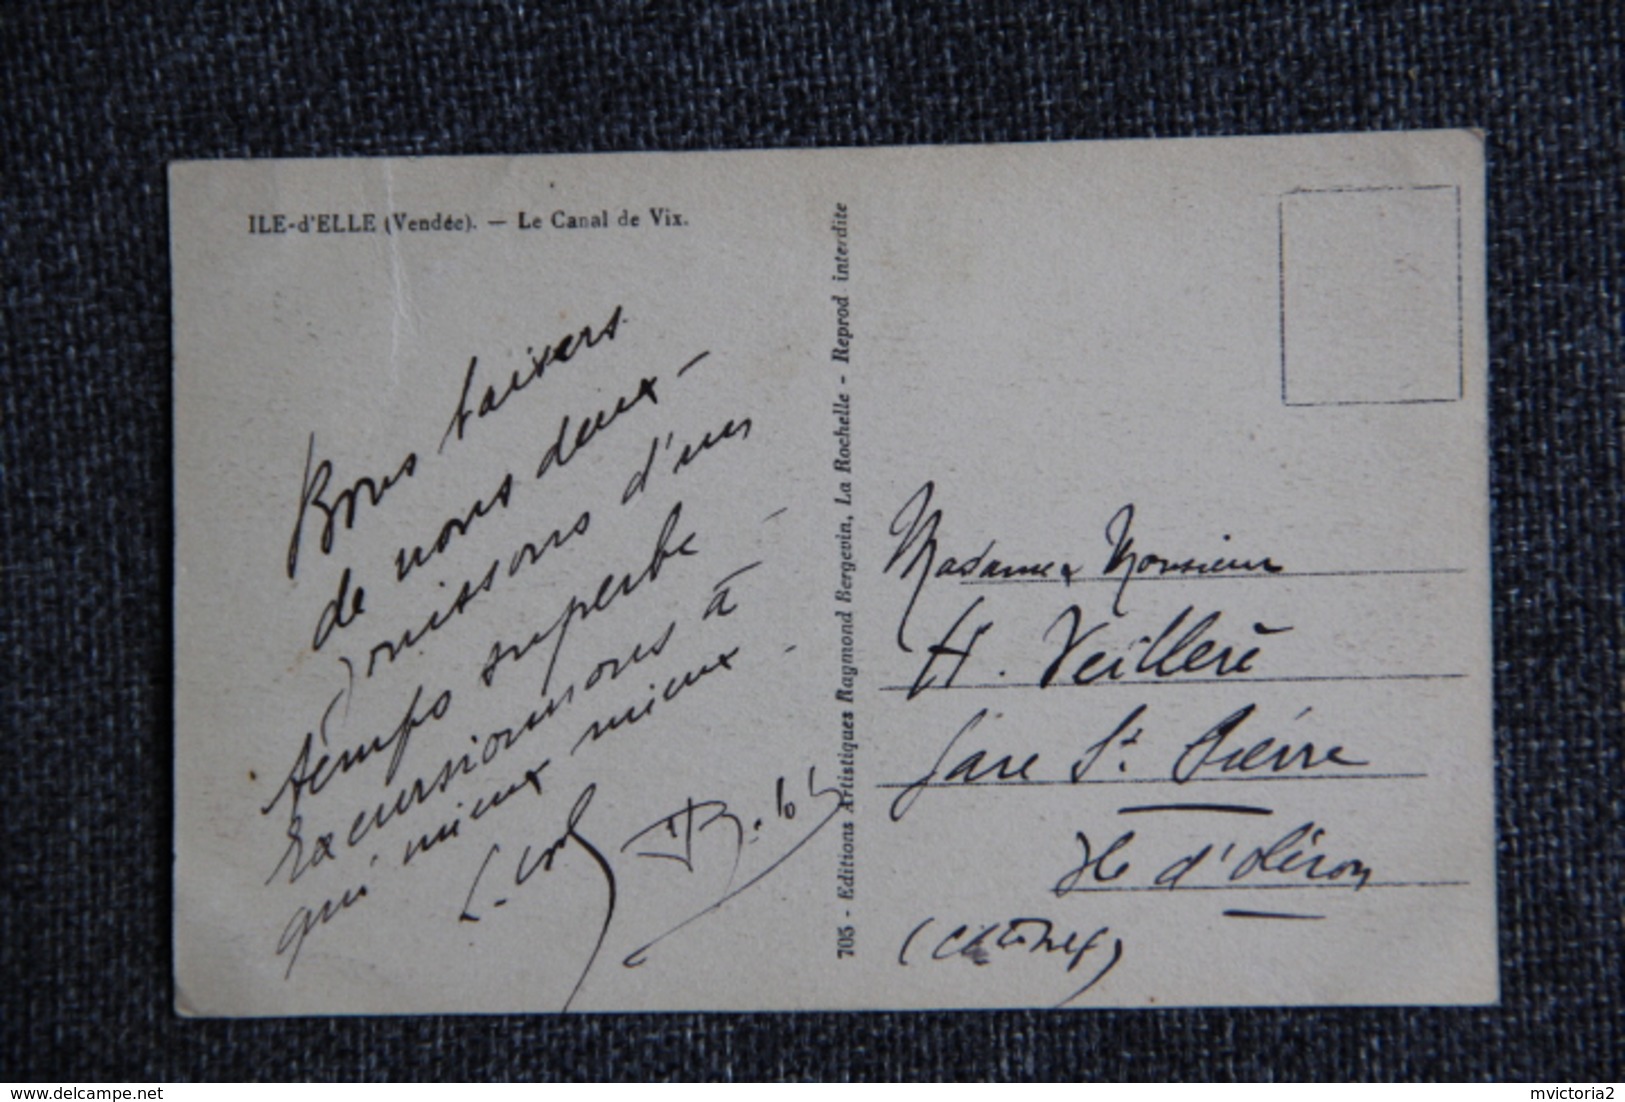 ILE-d'ELLE (Vendée). — Le Canal de Vix.
Bons baisers
de nous deux -
Jouissons d'un
temps superbe -
Excursionnons à
qui mieux mieux -
705 - Editions Artistiques Raymond Bergevin, La Rochelle - Reprod interdite
Madame & Monsieur
H. Veilleré
Gare St. Pierre
Ile d'Oléron
mvictoria2
www.delcampe.net